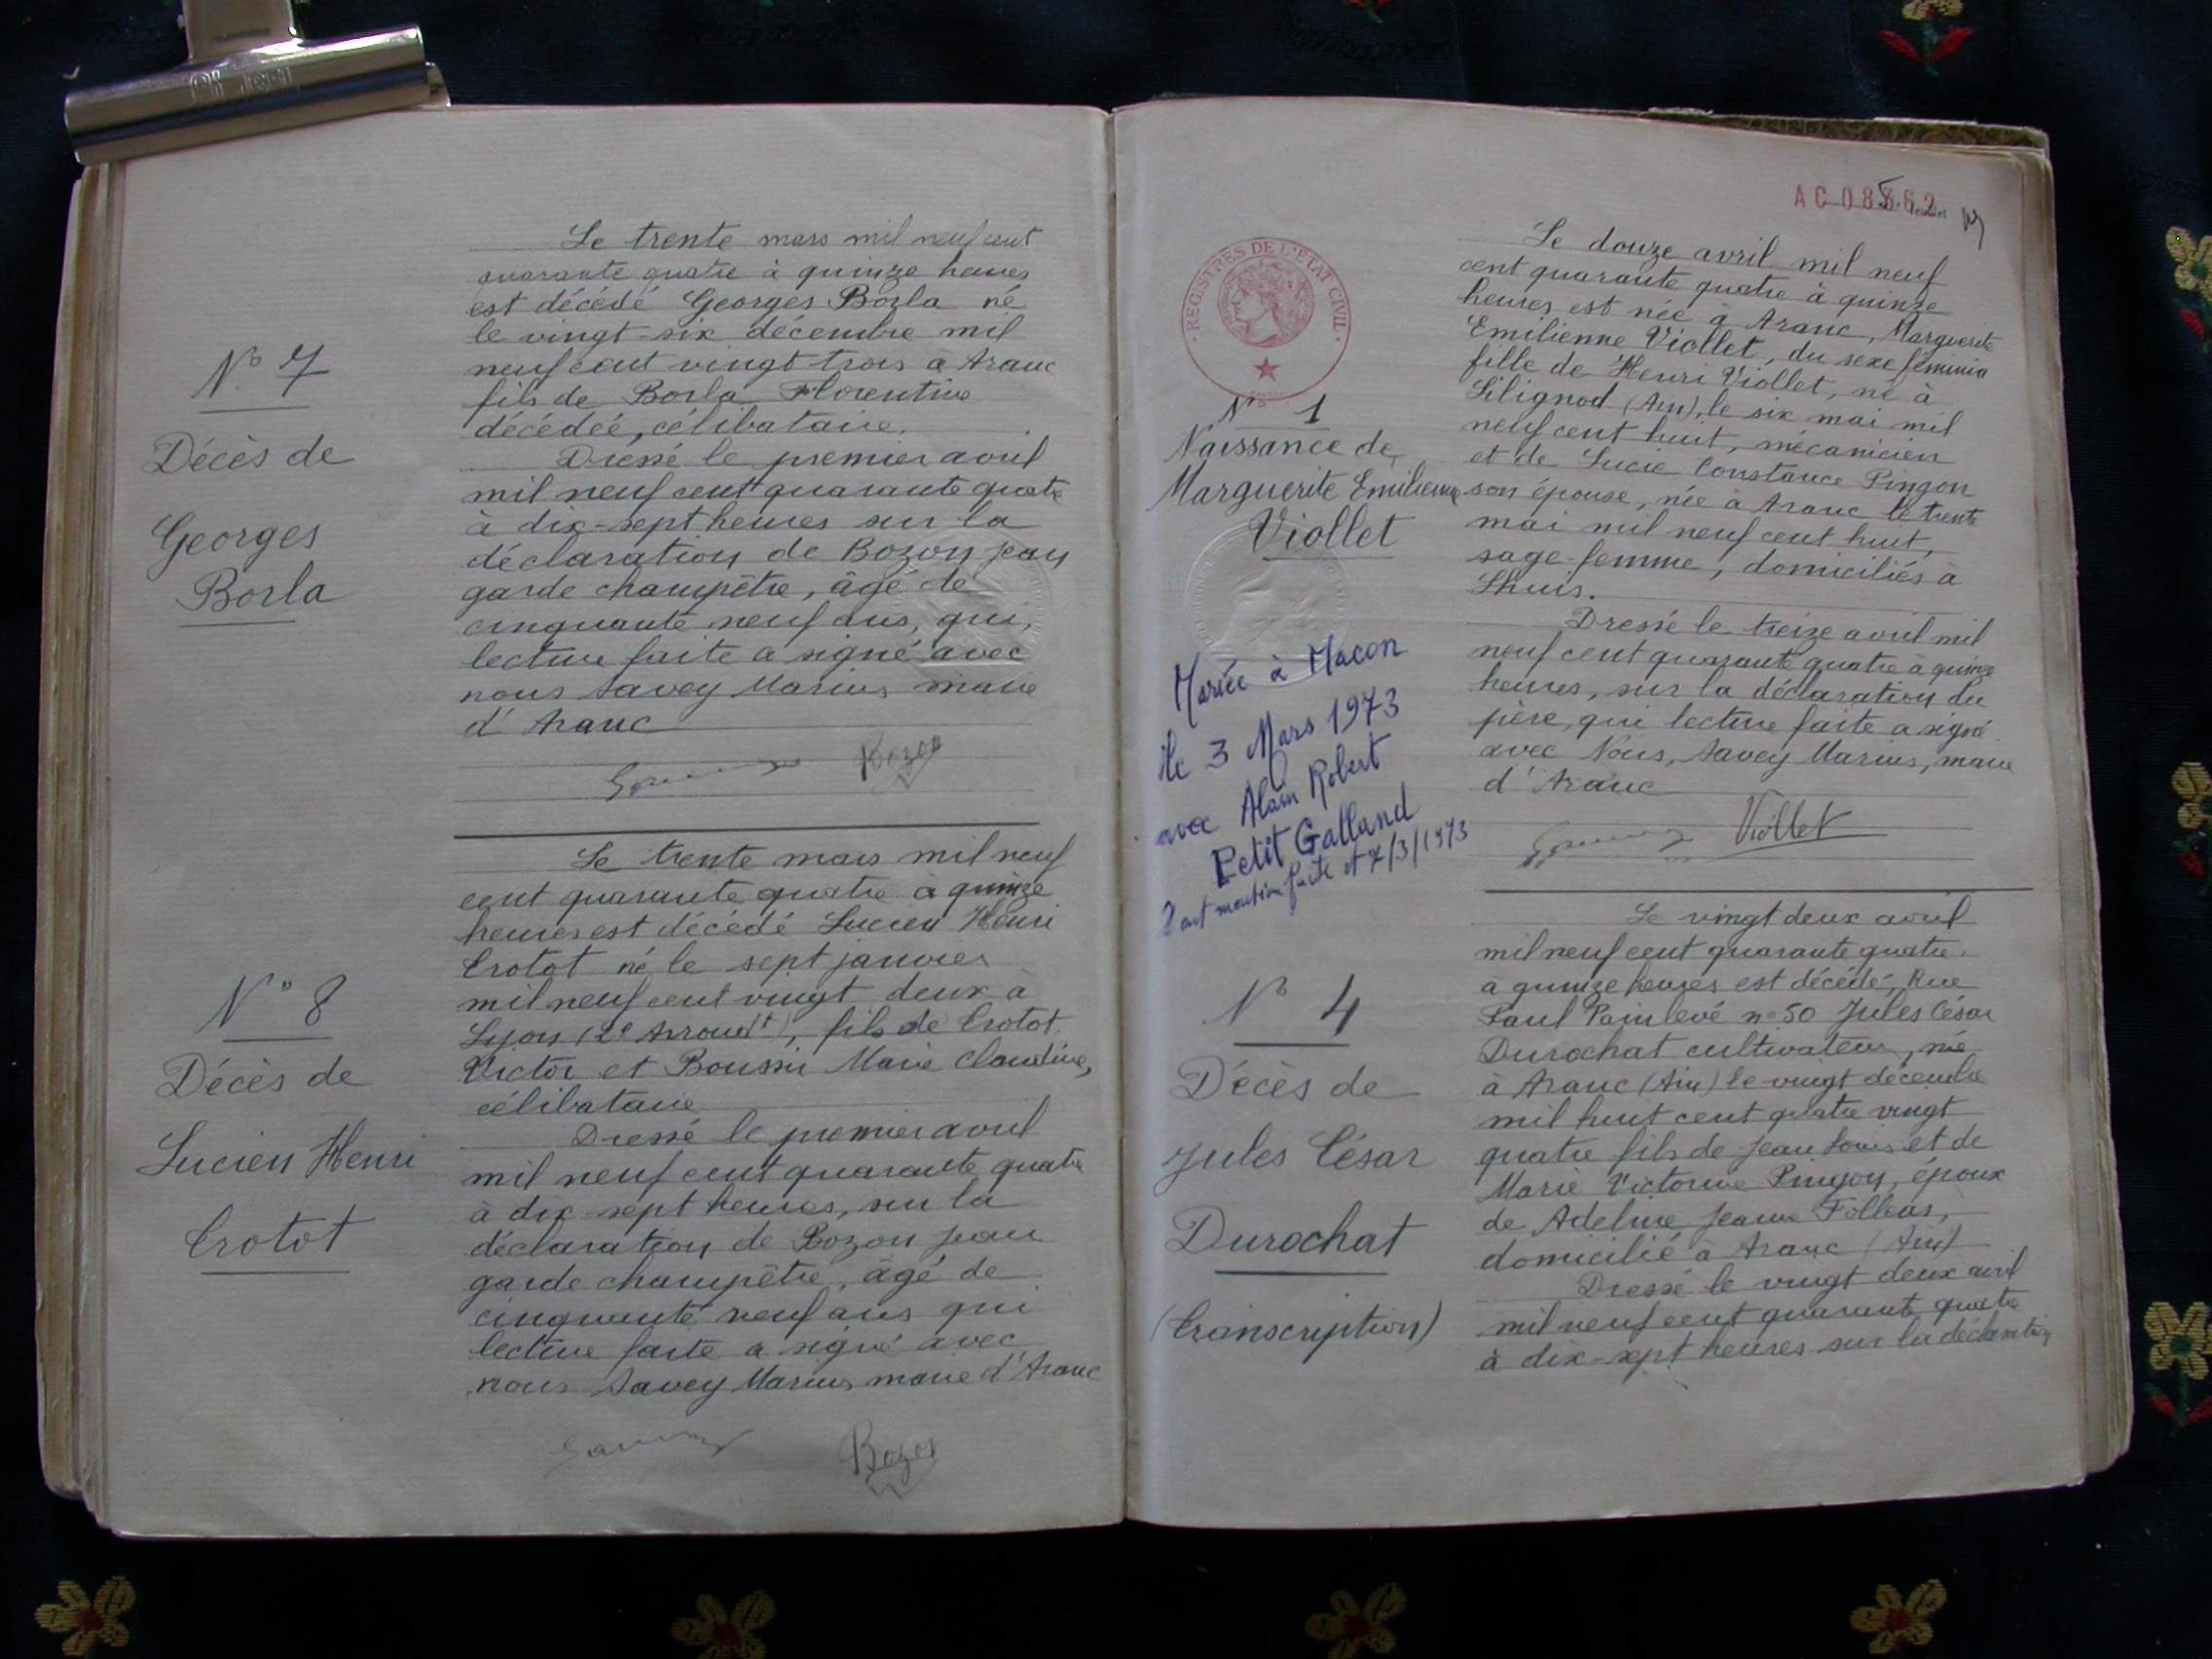 N° 7
Décès de
Georges
Borla
Le trente mars mil neuf cent
quarante quatre à quinze heures
est décédé Georges Borla né
le vingt-six décembre mil
neuf cent vingt trois à Aranc
fils de Borla Florentine
décédée, célibataire.
Dressé le premier avril
mil neuf cent quarante quatre
à dix-sept heures sur la
déclaration de Bozon Jean
garde champêtre, âgé de
cinquante neuf ans, qui,
lecture faite a signé avec
nous Savey Marius maire
d'Aranc
Bozon
N° 8
Décès de
Lucien Henri
Crotot
Le trente mars mil neuf
cent quarante quatre à quinze
heures est décédé Lucien Henri
Crotot né le sept janvier
mil neuf cent vingt deux à
Lyon (2e Arrondt), fils de Crotot
Victor et Boussin Marie Claudine,
célibataire
Dressé le premier avril
mil neuf cent quarante quatre
à dix-sept heures, sur la
déclaration de Bozon Jean
garde champêtre, âgé de
cinquante neuf ans qui
lecture faite a signé avec
nous Savey Marius maire d'Aranc
Bozon
REGISTRES DE L'ÉTAT CIVIL
N° 1
Naissance de
Marguerite Emilienne
Viollet
Mariée à Macon
le 3 Mars 1973
avec Alain Robert
Petit Galland
Dont mention faite et 7/3/1973
Le douze avril mil neuf
cent quarante quatre à quinze
heures est née à Aranc, Marguerite
Emilienne Viollet, du sexe féminin
fille de Henri Viollet, né à
Lilignod (Ain), le six mai mil
neuf cent huit, mécanicien
et de Lucie Constance Pingon
son épouse, née à Aranc le trente
mai mil neuf cent huit,
sage-femme, domiciliés à
Lhuis.
Dressé le treize avril mil
neuf cent quarante quatre à quinze
heures, sur la déclaration du
père, qui lecture faite a signé
avec Nous, Savey Marius, maire
d'Aranc
Viollet
N° 4
Décès de
Jules César
Durochat
(Transcription)
Le vingt deux avril
mil neuf cent quarante quatre
à quinze heures est décédé, Rue
Paul Painlevé n° 50 Jules César
Durochat cultivateur, né
à Aranc (Ain) le vingt décembre
mil huit cent quatre vingt
quatre fils de Jean Louis et de
Marie Victorine Pingon, époux
de Adeline Jeanne Folleas,
domicilié à Aranc (Ain)
Dressé le vingt deux avril
mil neuf cent quarante quatre
à dix-sept heures sur la déclaration